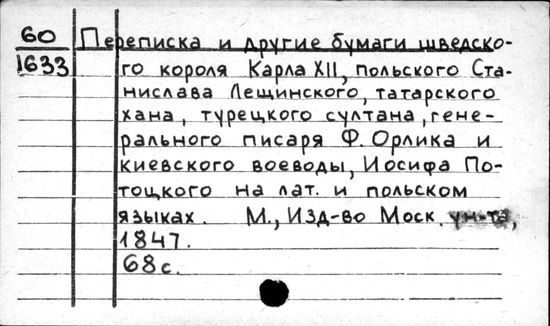 60 Переписка и другие бумаги шведско-
1633 го короля Карла XII, польского Ста-
нислава Лещинского, татарского
хана, турецкого султана, гене-
рального писаря Ф. Орлика и
киевского воеводы, Иосифа По-
тоцкого на лат. и польском
языках. М., Изд-во Моск. ун-та,
1847.
68 с.